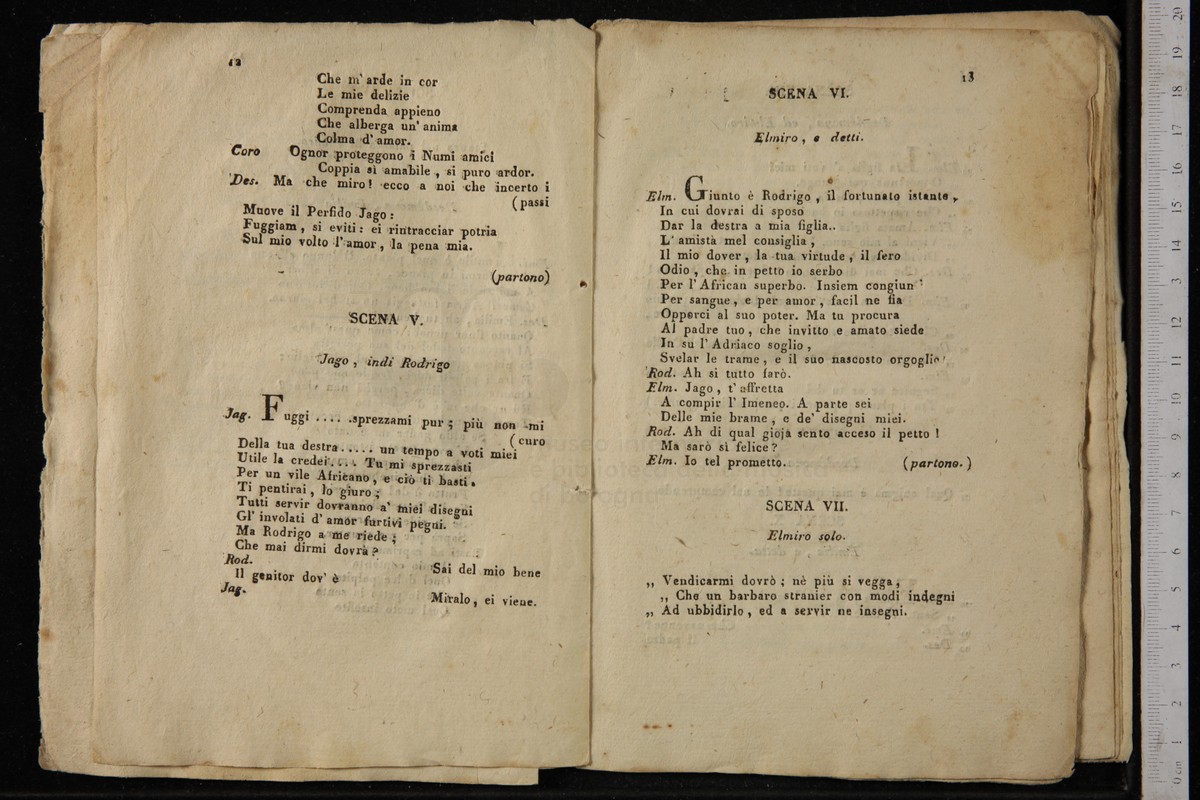 12
Che m' arde in cor
Le mie delizie
Comprenda appieno
Che alberga un' anima
Colma d' amor.
Coro Ognor proteggono i Numi amici
Coppia sì amabile , sì puro ardor.
Des. Ma che miro! ecco a noi che incerto i
(passi
Muove il Perfido Jago :
Fuggiam , si eviti : ei rintracciar potria
Sul mio volto l' amor , la pena mia.
(partono)
SCENA V.
Jago , indi Rodrigo
Jag. Fuggi .... .sprezzami pur ; più non mi
(curo
Della tua destra..... un tempo a voti miei
Utile la credei.... Tu mi sprezzasti
Per un vile Africano , e ciò ti basti.
Ti pentirai , lo giuro ;
Tutti servir dovranno a' miei disegni
Gl' involati d' amor furtivi pegni.
Ma Rodrigo a me riede ;
Che mai dirmi dovrà ?
Rod. Sai del mio bene
Il genitor dov' è
Jag. Miralo , ei viene.
13
SCENA VI.
Elmiro , e detti.
Elm. Giunto è Rodrigo , il fortunato istante ,
In cui dovrai di sposo
Dar la destra a mia figlia..
L' amistà mel consiglia ,
Il mio dover , la tua virtude , il fero
Odio , che in petto io serbo
Per l' African superbo. Insiem congiun'
Per sangue , e per amor , facil ne fia
Opporci al suo poter. Ma tu procura
Al padre tuo , che invitto e amato siede
In su l' Adriaco soglio ,
Svelar le trame , e il suo nascosto orgoglio
Rod. Ah si tutto farò.
Elm. Jago , t' affretta
A compir l' Imeneo. A parte sei
Delle mie brame , e de' disegni miei.
Rod. Ah di qual gioja sento acceso il petto !
Ma sarò sì felice ?
Elm. Io tel prometto. (partono.)
SCENA VII.
Elmiro solo.
,, Vendicarmi dovrò ; nè più si vegga ,
,, Che un barbaro stranier con modi indegni
,, Ad ubbidirlo , ed a servir ne insegni.
0 cm 1 2 3 4 5 6 7 8 9 10 11 12 13 14 15 16 17 18 19 20